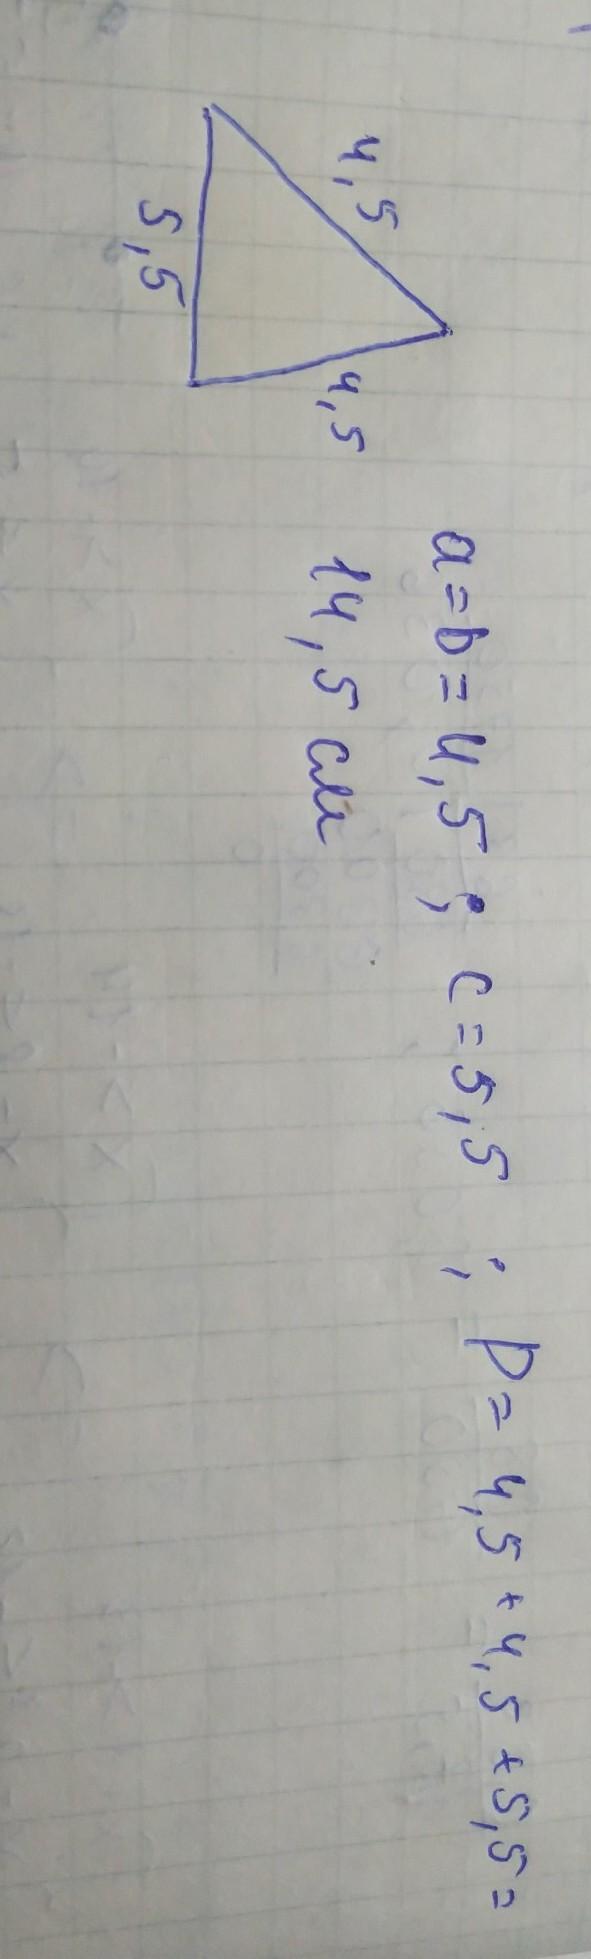 4,5
4,5
5,5
a=b=4,5 ; c=5,5 ; P=4,5+4,5+5,5=
14,5 см